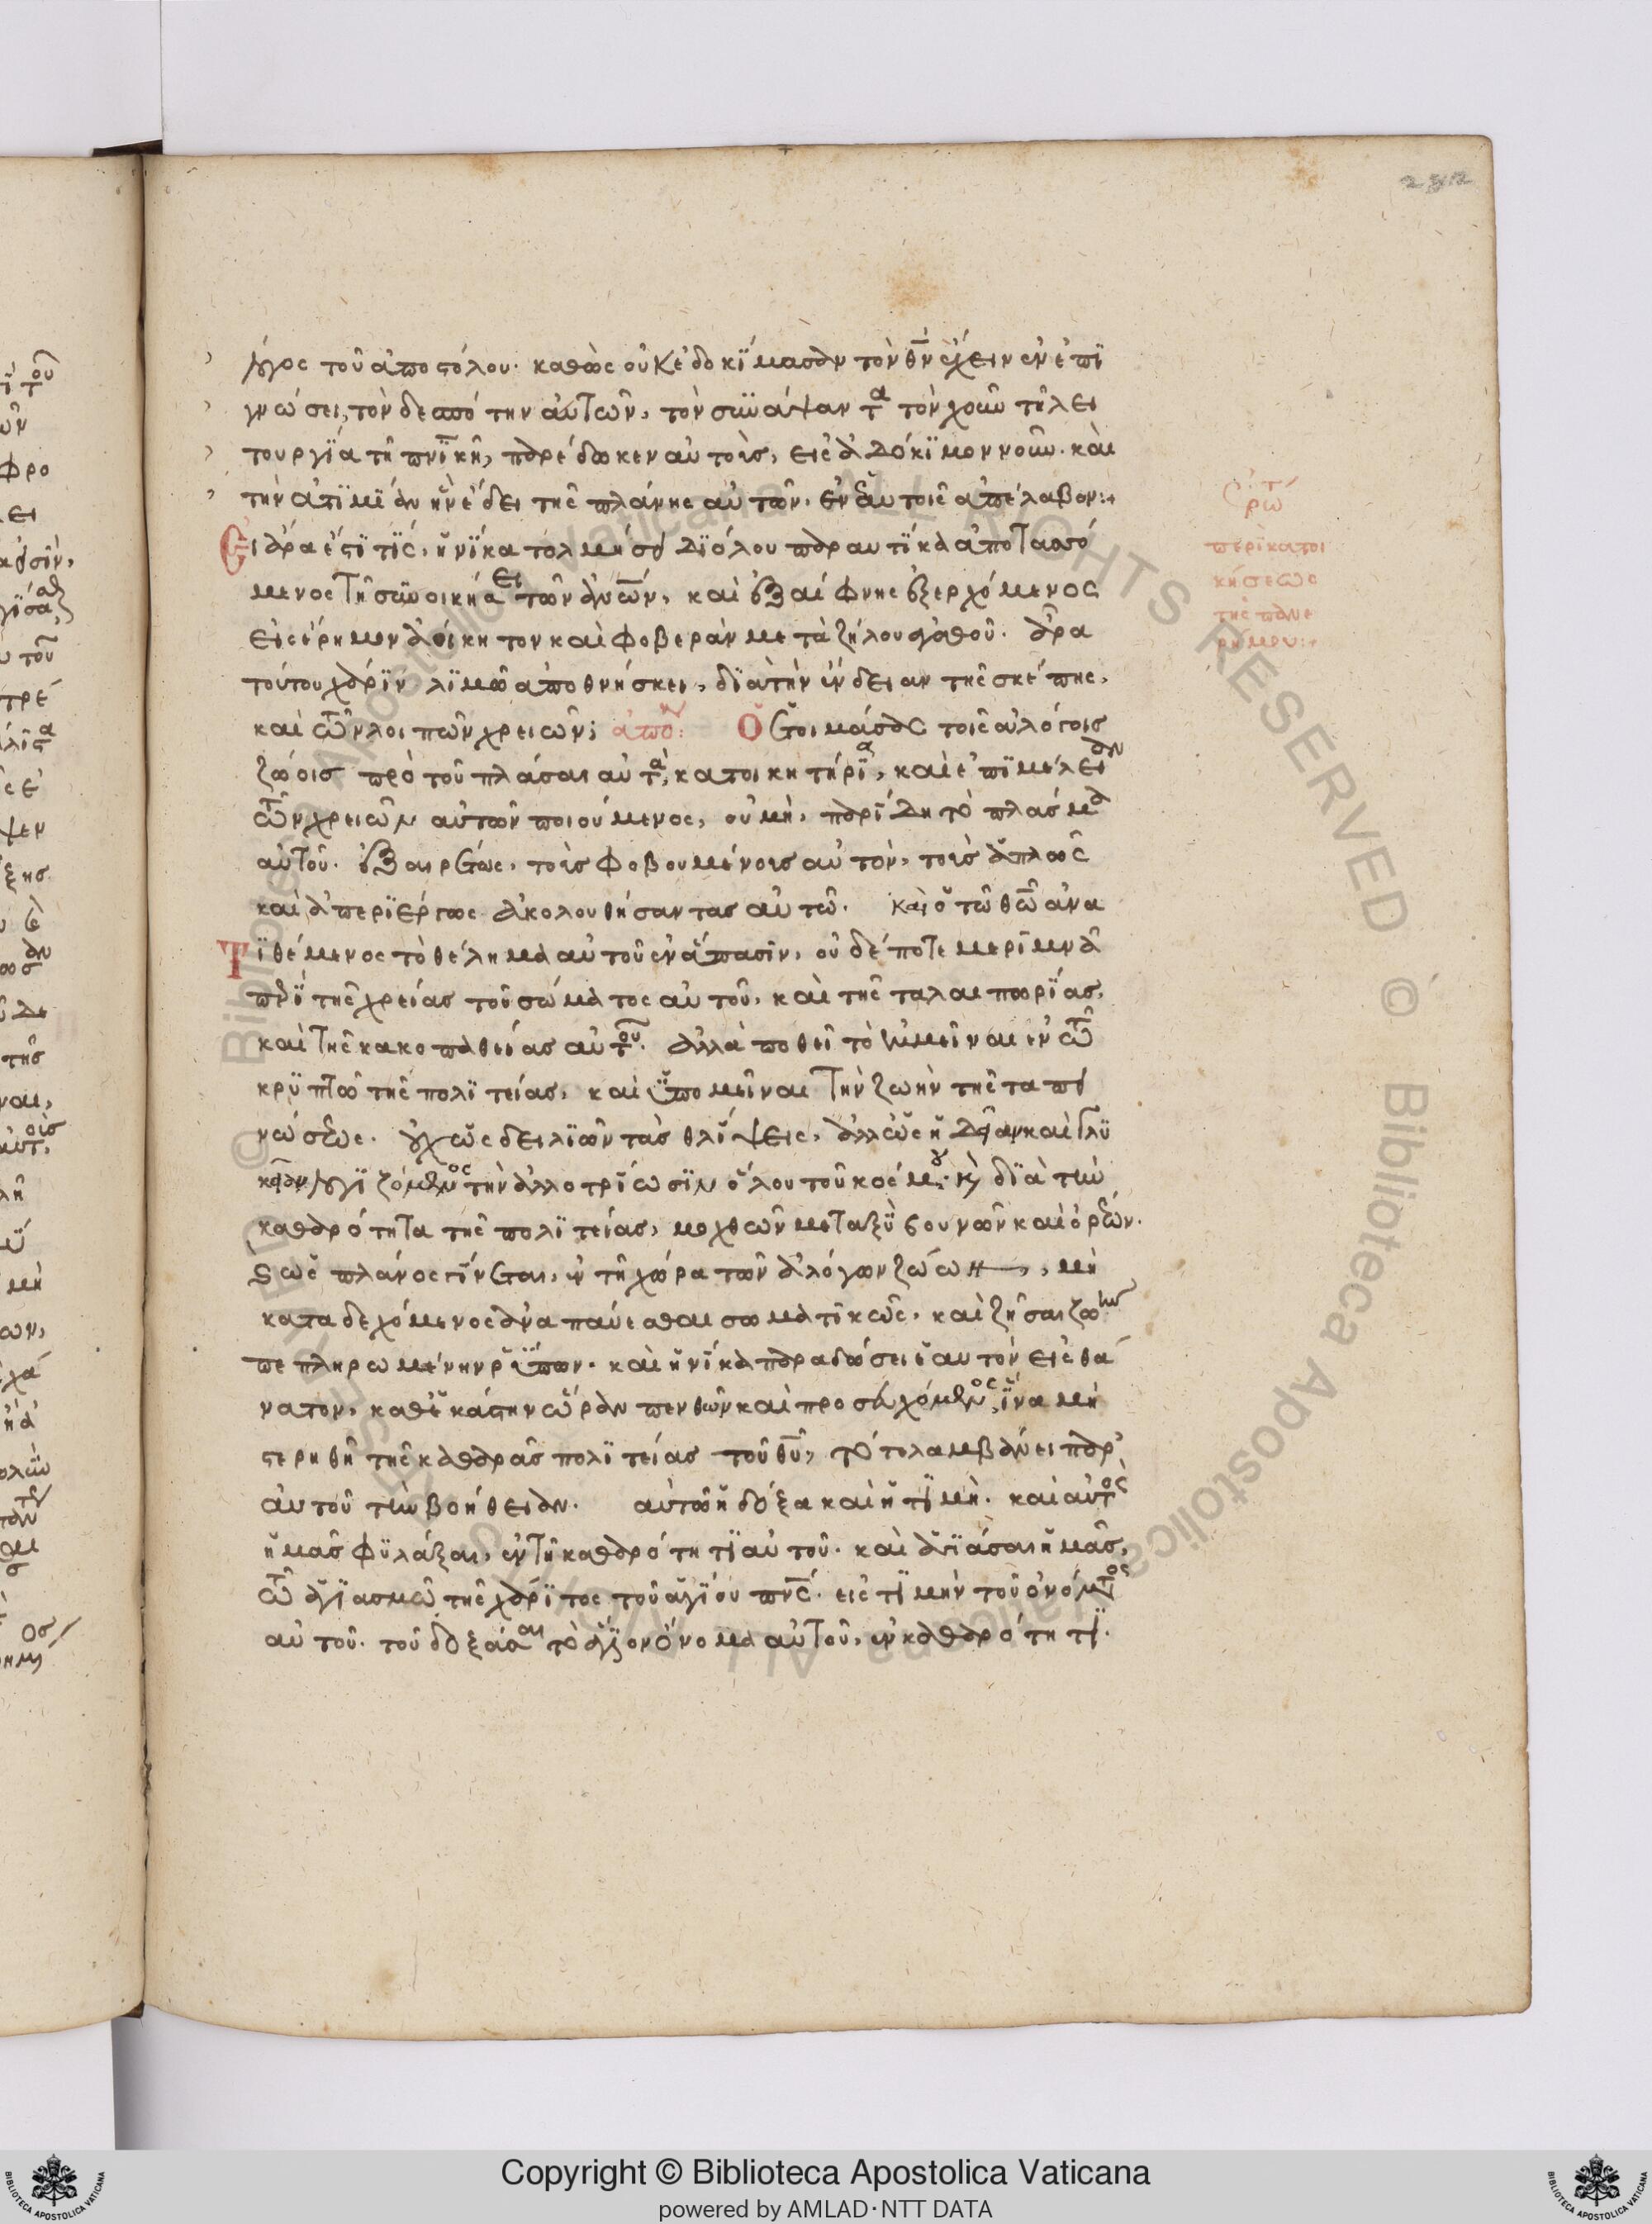 282
λόγος τοῦ ἀποστόλου· καθὼς οὐκ ἐδοκϊμασαν τὸν θν ἔχειν ἐν ἐπϊ
γνώσει, τὸν δεσπότην αὐτῶν, τὸν συνάψαντα τὸν χοῦν τῆ λει
τουργΐα τῆ πνϊκῆ, παρέδωκεν αὐτοῖς, εἰς ἀδόκϊμον νοῦν· καὶ
τὴν ἀντϊμισθΐαν ἣν ἔδει τῆς πλάνης αὐτῶν, ἐν ἑαυτοῖς ἀπέλαβον:+
Εἰ ἄρα ἐστΐ τϊς, ἡνΐκα τολμήσει δϊόλου παραυτΐκα ἀποταασό
μενος τῆ συνοικήσει τῶν ανων, καὶ ἐξαίφνης ἐξερχόμενος
εἰς ἔρημον ἀοίκητον καὶ φοβερὰν μετὰ ζήλου ἀγαθοῦ. ἄρα
τούτου χάρϊν λϊμῶ ἀποθνήσκει, δϊὰ τὴν ἔνδειαν τῆς σκέπης,
καὶ τῶν λοιπῶν χρειῶν; ἀπο: Ὁ ἑτοιμάσας τοῖς ἀλόγοις
ζώοις πρὸ τοῦ πλάσαι αὐτὰ, κατοικητήρϊα, καὶ ἐπϊμέλειαν
τῶν χρειῶν αὐτῶν ποιούμενος, οὐ μὴ, παρΐδη τὸ πλάσμα
αὐτοῦ. ἐξαιρέτως, τοῖς φοβουμένοις αὐτὸν, τοῖς ἁπλῶς
καὶ ἀπερϊέργως ἀκολουθήσαντας αὐτῶ. καὶ ὁ τῶ θω ἀνα
Τϊθέμενος τὸ θέλημα αὐτοῦ ἐν ἅπασϊν, οὐδέποτε μερϊμνᾶ
περῒ τῆς χρείας τοῦ σώματος αὐτοῦ, καὶ τῆς ταλαιπωρΐας,
καὶ τῆς κακοπαθείας αὐτοῦ. ἀλλὰ ποθεῖ τὸ ἐμμεῖναι ἐν τῶ
κρϋπτῶ τῆς πολϊτείας, καὶ ὑπομεῖναι τὴν ζωὴν τῆς ταπει
νώσεως. οὐχ ὡς δειλϊῶν τὰς θλΐψεις, ἀλλ ὡς
λογϊζόμενος τὴν ἀλλοτρΐωσϊν ὅλου τοῦ κόσμου· καὶ δϊὰ τὴν
καθαρότητα τῆς πολϊτείας, μοχθῶν μεταξῢ βουνῶν καὶ ὀρέων.
ὡς πλάνος γΐνεται, ἐν τῆ χώρα τῶν ἀλόγων ζώων, μὴ
καταδεχόμενος ἀναπαύεσθαι σωματϊκῶς, καὶ ζῆσαι ζωὴν
πεπληρωμένην ῥΰπων· καὶ ἡνΐκα παραδώσει ἑαυτὸν εἰς θά
νατον, καθ ἑκάστην ὥραν πενθῶν καὶ προσευχόμενος, ἵνα μὴ
στερηθῆ τῆς καθαρᾶς πολϊτείας τοῦ θυ, τότε λαμβάνει παρ
αὐτοῦ τὴν βοήθειαν. αὐτῶ ἡ δόξα καὶ ἡ τϊμὴ. καὶ αὐτὸς
ἡμᾶς φϋλάξαι, ἐν τῆ καθαρότητϊ αὐτοῦ. καὶ ἁγϊάσαι ἡμᾶς,
τῶ ἁγϊασμῶ τῆς χάρϊτος τοῦ ἁγΐου πνς. εἰς τϊμὴν τοῦ ὀνόματος
αὐτοῦ. τοῦ δοξάσαι τὸ ἅγϊον ὄνομα αὐτοῦ, ἐν καθαρότητϊ.
ἐρώ
περὶ κατοι
κήσεως
τῆς παν ε
ρήμου:+
Copyright © Biblioteca Apostolica Vaticana
powered by AMLAD·NTT DATA